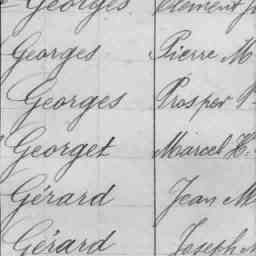 Georges Clément
Georges Pierre M
Georges Prosper
Georget Marcel H.
Gérard Jean M
Gérard Joseph